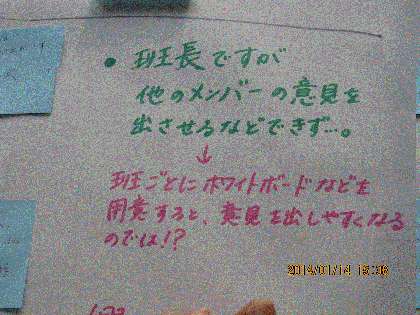 ● 班長ですが
他のメンバーの意見を
出させるなどできず…。
↓
班ごとにホワイトボードなどを
用意すると、意見を出しやすくなる
のでは!?
2014/01/14 15:36